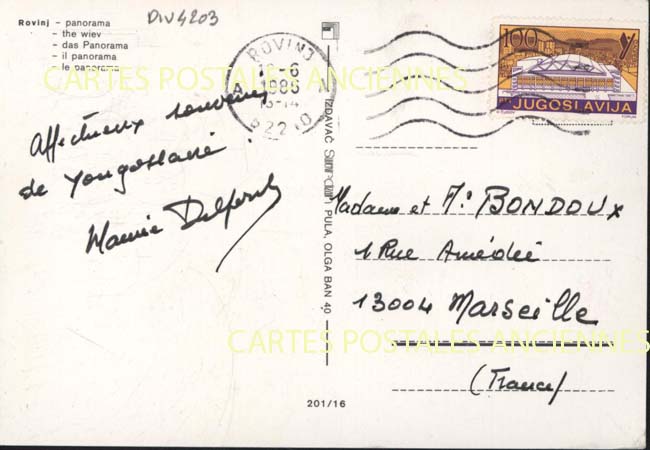 DIV4203
Rovinj - panorama
- the wiev
- das Panorama
- il panorama
- le panorama
ROVINJ
1986
13-14
52210
100
JUGOSLAVIJA
CARTES POSTALES ANCIENNES
Affectueux souvenirs
de Yougoslavie
IZDAVAČ PULA, OLGA BAN 40
Madame et Mr BONDOUX
1 Rue Amédée
13004 Marseille
(France)
CARTES POSTALES ANCIENNES
201/16